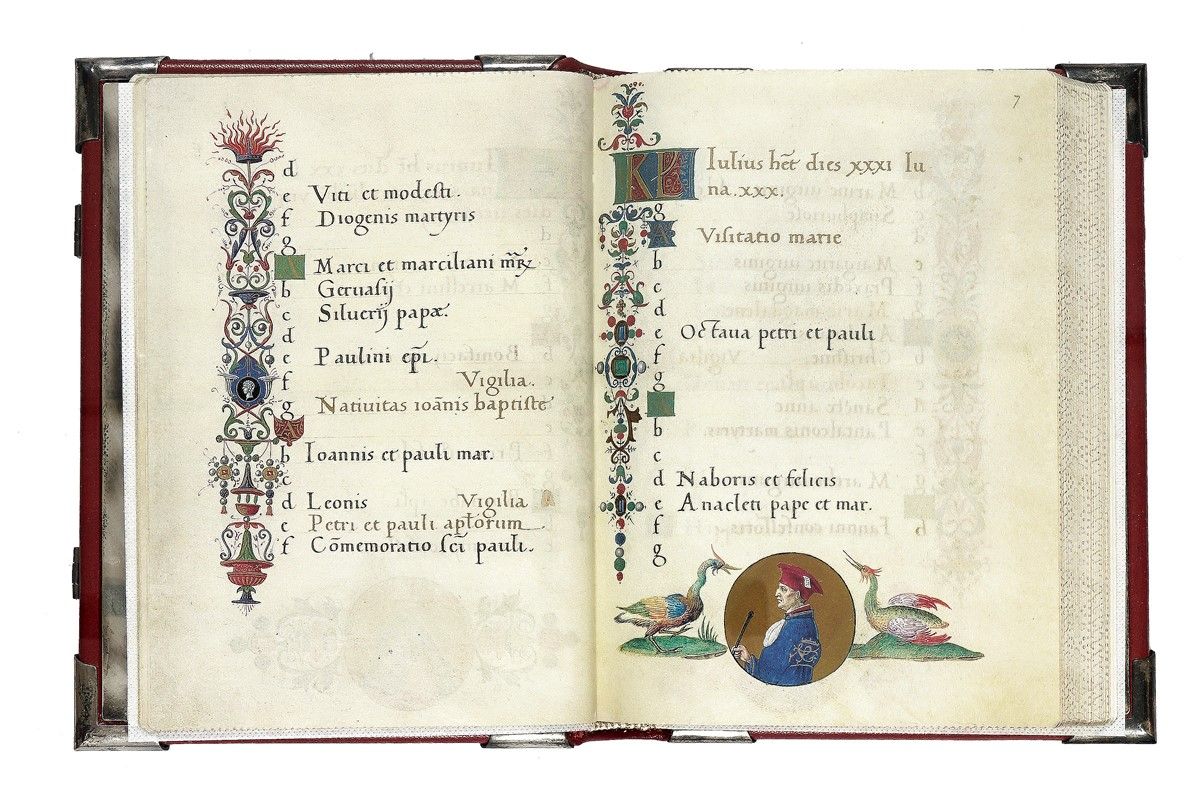 d
e Viti et modesti.
f Diogenis martyris
g
A Marci et marciliani mr̄ꝝ
b Geruasij
c Siluerij papæ.
d
e Paulini ep̄i.
f Vigilia.
g Natiuitas ioānis baptiste
A
b Ioannis et pauli mar.
c
d Leonis Vigilia
e Petri et pauli apt̄orum
f Cōmemoratio sc̄i pauli.
7
KL Iulius hēt dies xxxi Iu
na.xxx.
g
A Visitatio marie
b
c
d
e Octaua petri et pauli
f
g
b
c
d Naboris et felicis
e Anacleti pape et mar.
f
g